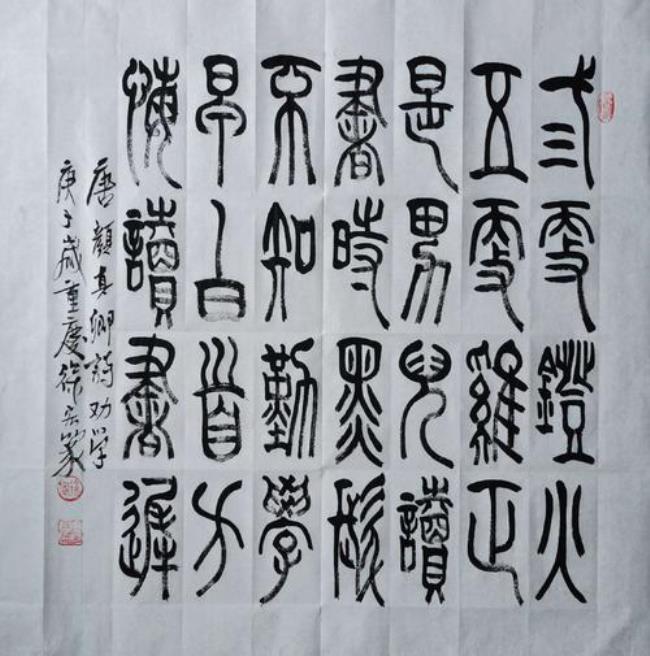 弎更鐙火
五更雞正
是男兒讀
書時黑髮
不知勤學
早白首方
悔讀書遲
唐顏真卿詩劝学
庚子歲重慶徐篆